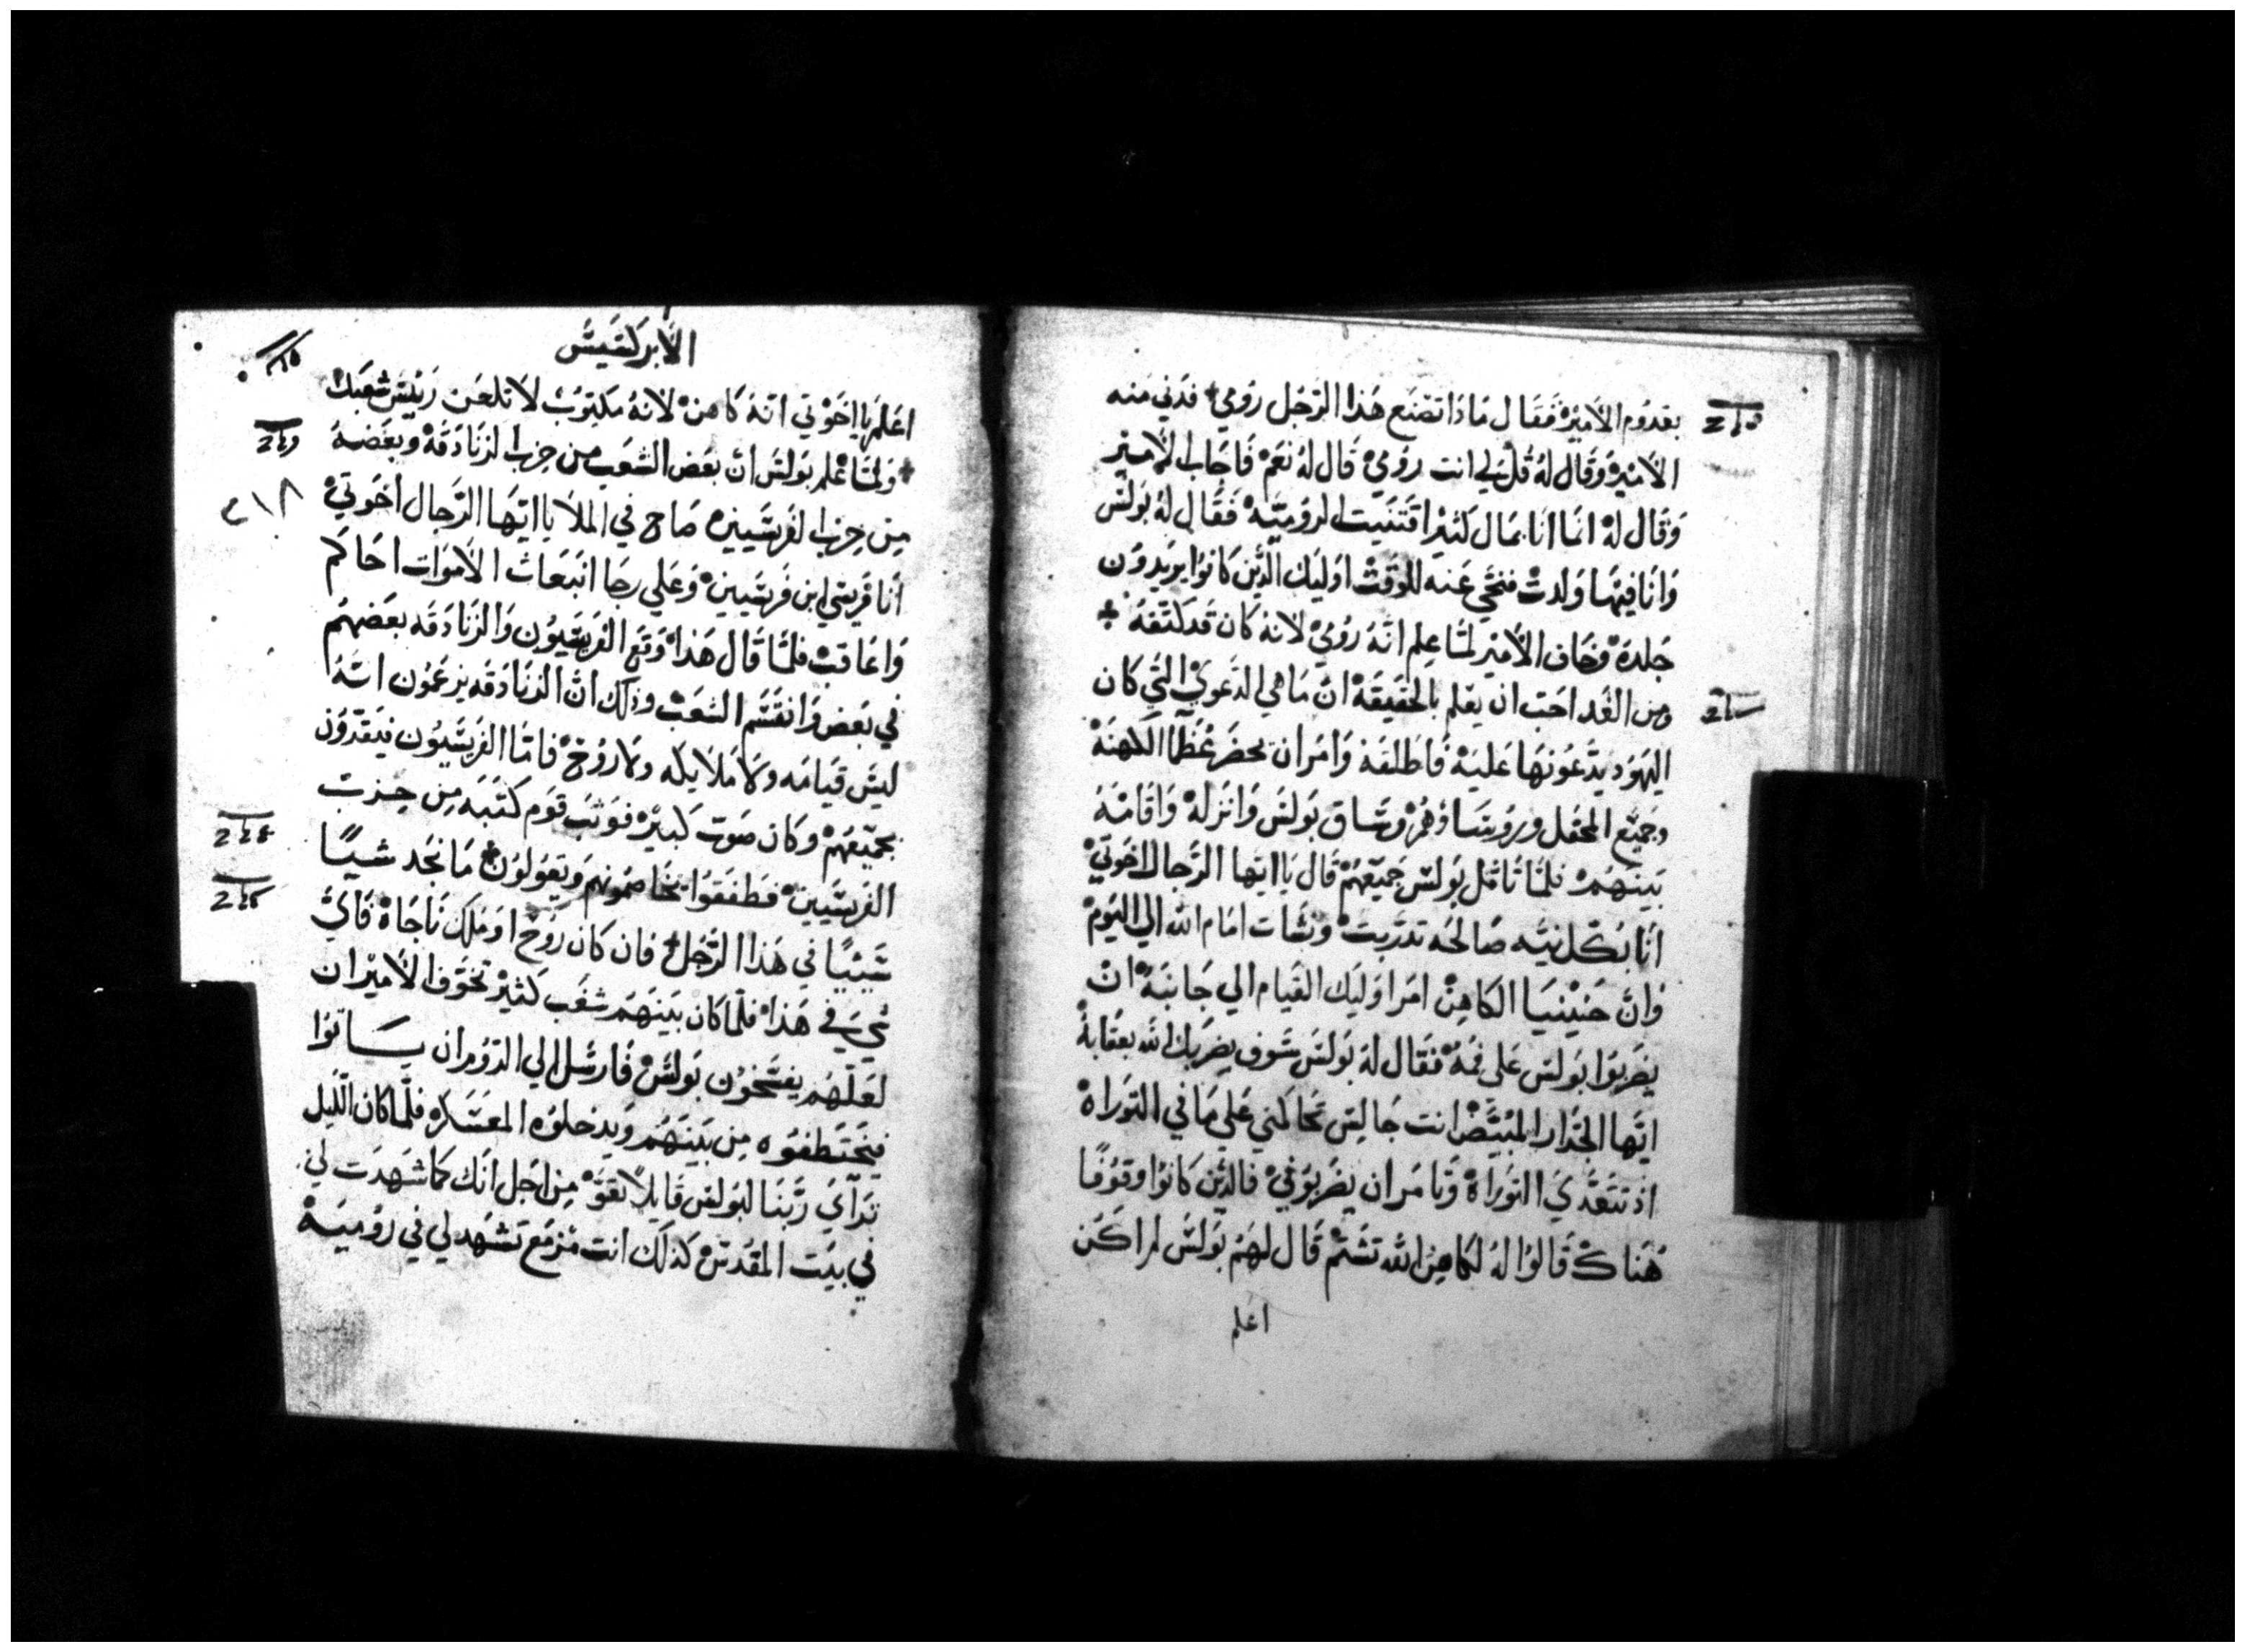 بقدوم الامير فقال ماذا تصنع هذا الرجل رومي فدني منه
الامير وقال له قل لي انت رومي قال له نعم فاجاب الامير
وقال له انما انا بمال كثير اقتنيت الروميه فقال له بولس
وانا فيها ولدت فتنحي عنه للوقت اوليك الذين كانوا يريدون
جلده وخاف الامير لما علم انه رومي لانه كان قد كتفه
ومن الغد احب ان يعلم بالحقيقة ان ما هي الدعوي التي كان
اليهود يدعونها عليه فاطلقه وامر ان يحضر عظما الكهنة
وجميع المحفل وروساؤهم وساق بولس وانزله واقامه
بينهم فلما تامل بولس جميعهم قال يا ايها الرجال اخوتي
انا بكل نيه صالحه تدربت ونشات امام الله الي اليوم
وان حنينيا الكاهن امر اوليك القيام الي جانبه ان
يضربوا بولس علي فمه فقال له بولس سوف يضربك الله بعقابه
ايها الجدار المبيض انت جالس تحاكمني علي ما في التوراة
اذ تتعدي التوراة وتامر ان يضربوني فالذين كانوا وقوفا
هناك قالوا له لكاهن الله تشتم قال لهم بولس لم اكن
اعلم
الابركسيس
اعلم يا اخوتي انه كاهن لانه مكتوب لا تلعن رئيس شعبك
ولما علم بولس ان بعض الشعب من حزب الزنادقة وبعضه
من حزب الفريسيين صاح في الملا يا ايها الرجال اخوتي
انا فريسي ابن فريسيين وعلي رجا انبعاث الاموات احاكم
واعاقب فلما قال هذا وقع الفريسيون والزنادقه بعضهم
في بعض وانقسم الشعب وذلك ان الزنادقه يزعمون انه
ليس قيامه ولا ملايكه ولا روح فاما الفريسيون فيقرون
بجميعهم وكان صوت كبير فوثب قوم كتبه من حزب
الفريسيين فطفقوا يخاصمونهم ويقولون ما نجد شيا
شييا في هذا الرجل فان كان روح او ملك ناجاه فاي
شي في هذا فلما كان بينهم شغب كثير تخوف الامير ان
لعلهم يفسخون بولس فارسل الي الروم ان ياتوا
فيختطفوه من بينهم ويدخلوه المعسكر فلما كان الليل
ترآي ربنا لبولس قايلا تقو من اجل انك كما شهدت لي
في بيت المقدس كذلك انت مزمع تشهد لي في رومية